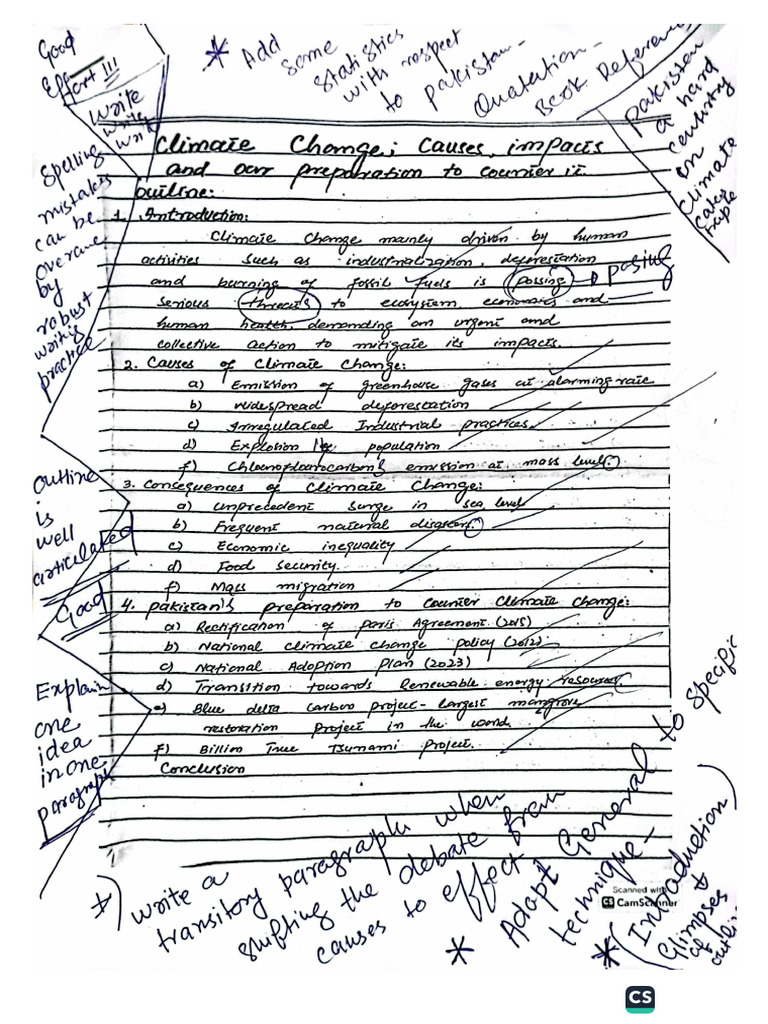 Good
Effort !!!
write
write
write
Spelling
mistakes
can be
overcome
by
robust
writing
practice
* Add some
statistics
with respect
to Pakistan -
Quotation -
Book Reference
Pakistan
a hard
country
on
climate
Climate Change; Causes, impacts
and our preparation to counter it.
Outline:
1. Introduction:
Climate Change mainly driven by human
activities such as industrialization, deforestation
and burning of fossil fuels is possing → posing
serious threats to ecosystem, economies and
human health, demanding an urgent and
collective action to mitigate its impacts.
2. Causes of Climate Change:
a) Emission of greenhouse gases at alarming rate
b) Widespread deforestation
c) Irregulated Industrial practices.
d) Explosion of population
f) Chloroflorocarbons emission at mass level.
3. Consequences of Climate Change:
a) Unprecedent surge in sea level
b) Frequent natural disasters.
c) Economic inequality
d) Food Security.
f) Mass migration
4. Pakistan's preparation to Counter Climate Change:
a) Rectification of Paris Agreement (2015)
b) National climate change policy (2012)
c) National Adoption Plan (2023)
d) Transition towards Renewable energy resources
e) Blue delta Carbon project - largest mangrove
restoration project in the world.
f) Billion Tree Tsunami Project.
Conclusion
Outline
is
well
articulated
Good
Explain
one
idea
in one
paragraph
*) write a
transitory paragraph when
shifting the debate from
causes to effect
* Adapt General to specific
technique -
* (Introduction)
Glimpses
of
outline
Scanned with
CS CamScanner
CS